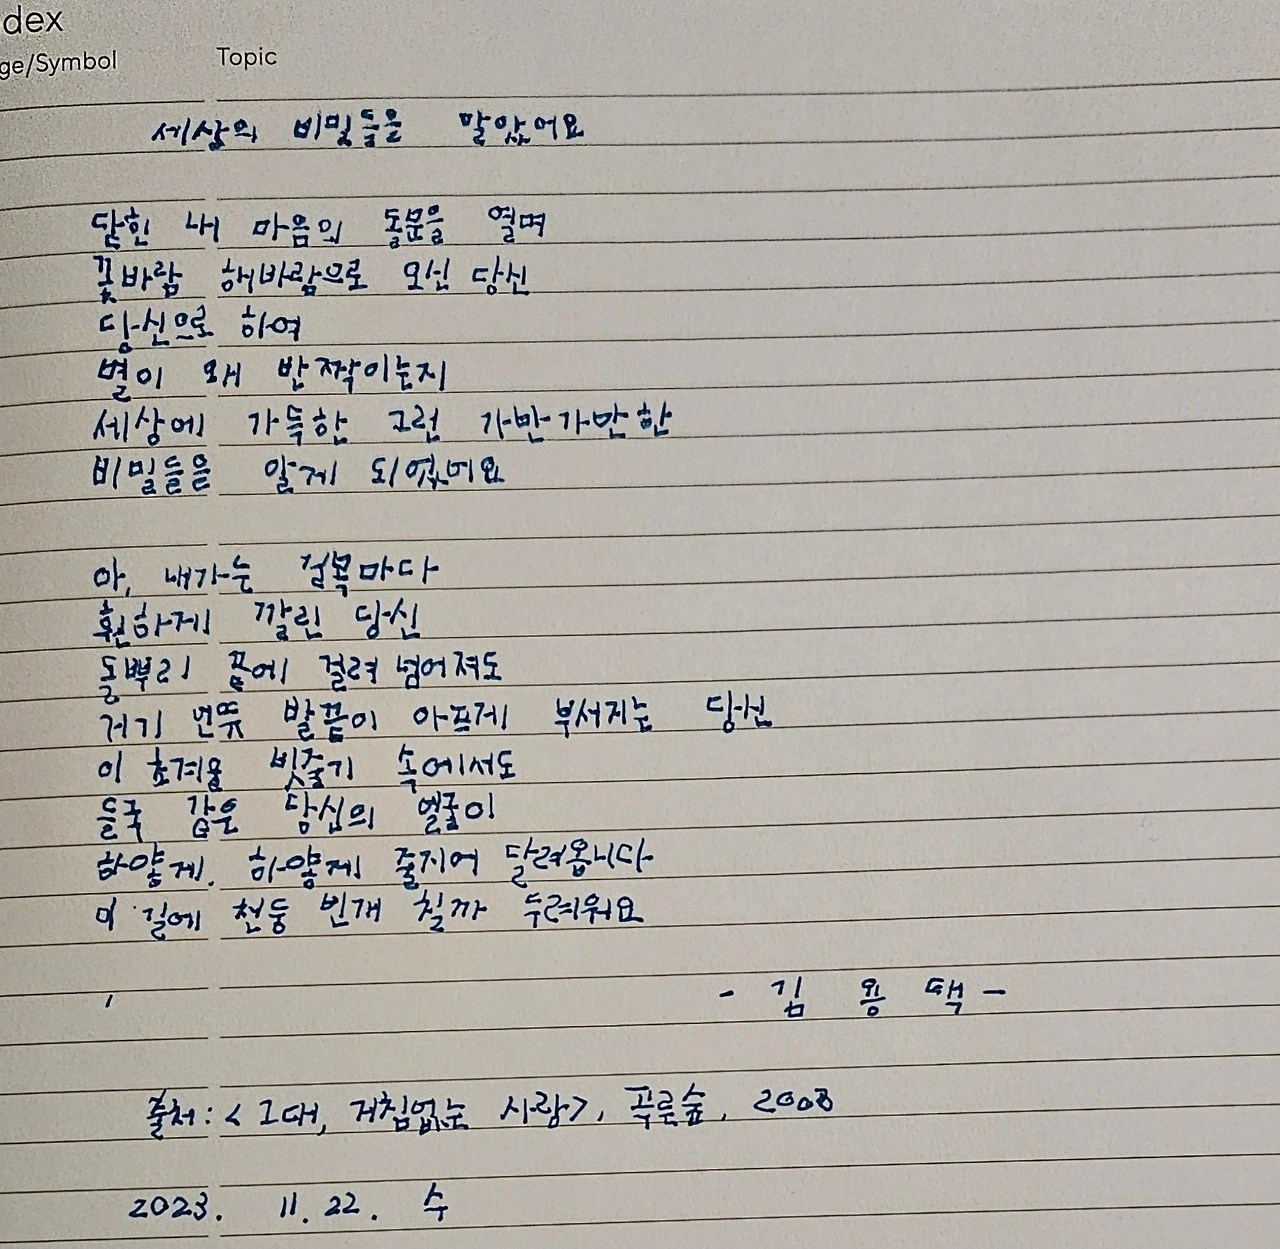 dex
ge/Symbol Topic
세상의 비밀들을 알았어요
닫힌 내 마음의 돌문을 열며
꽃바람 해바람으로 오신 당신
당신으로 하여
별이 왜 반짝이는지
세상에 가득한 그런 가만가만한
비밀들을 알게 되었어요
아, 내가는 길목마다
훤하게 깔린 당신
돌뿌리 끝에 걸려 넘어져도
거기 언뜻 발끝이 아프게 부서지는 당신
이 초겨울 빗줄기 속에서도
들국 같은 당신의 얼굴이
하얗게. 하얗게 줄지어 달려옵니다
이 길에 천둥 번개 칠까 두려워요
- 김 용 택 -
출처: < 그대, 거침없는 사랑>, 푸른숲, 2003
2023. 11. 22. 수